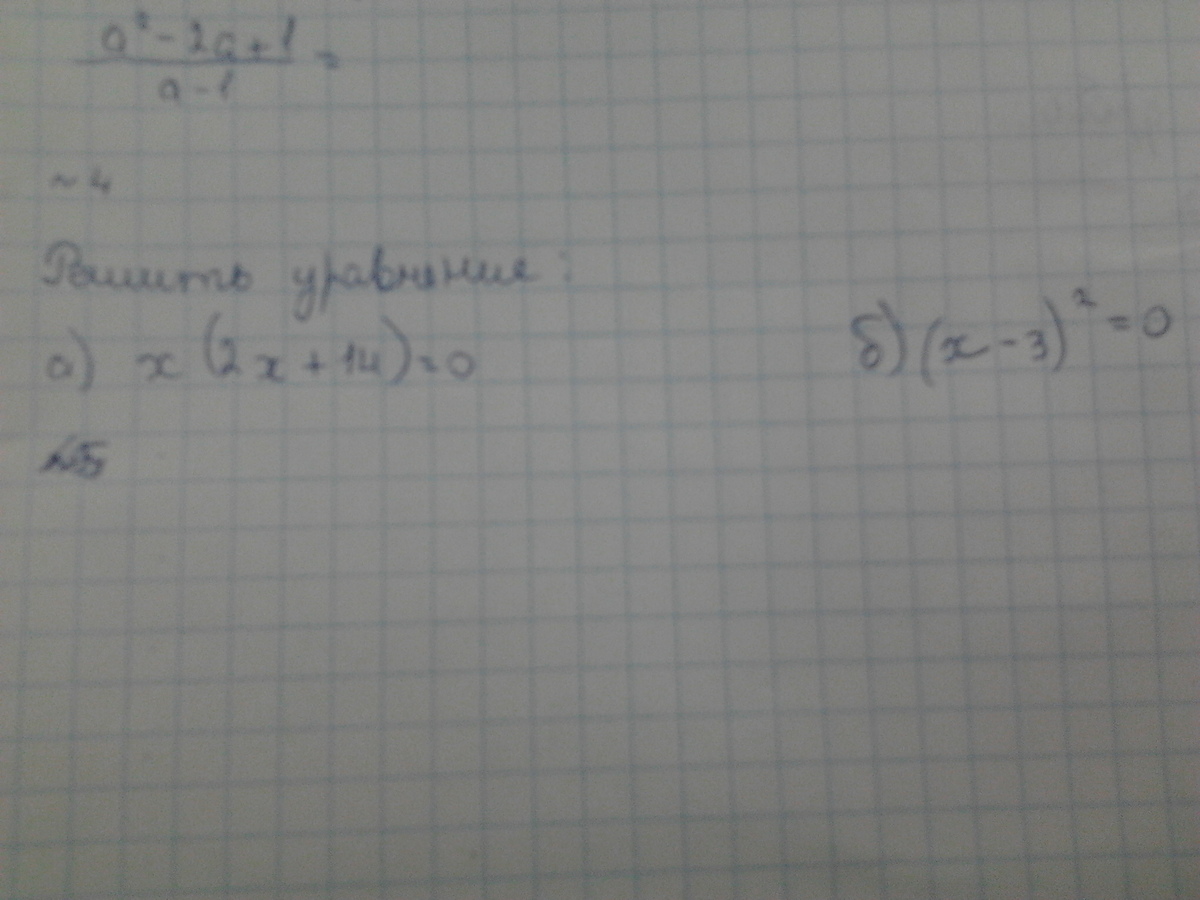 a² - 2a + 1
a - 1 =
~ 4
Решить уравнение:
а) x (2x + 14) = 0 б) (x - 3)² = 0
№5